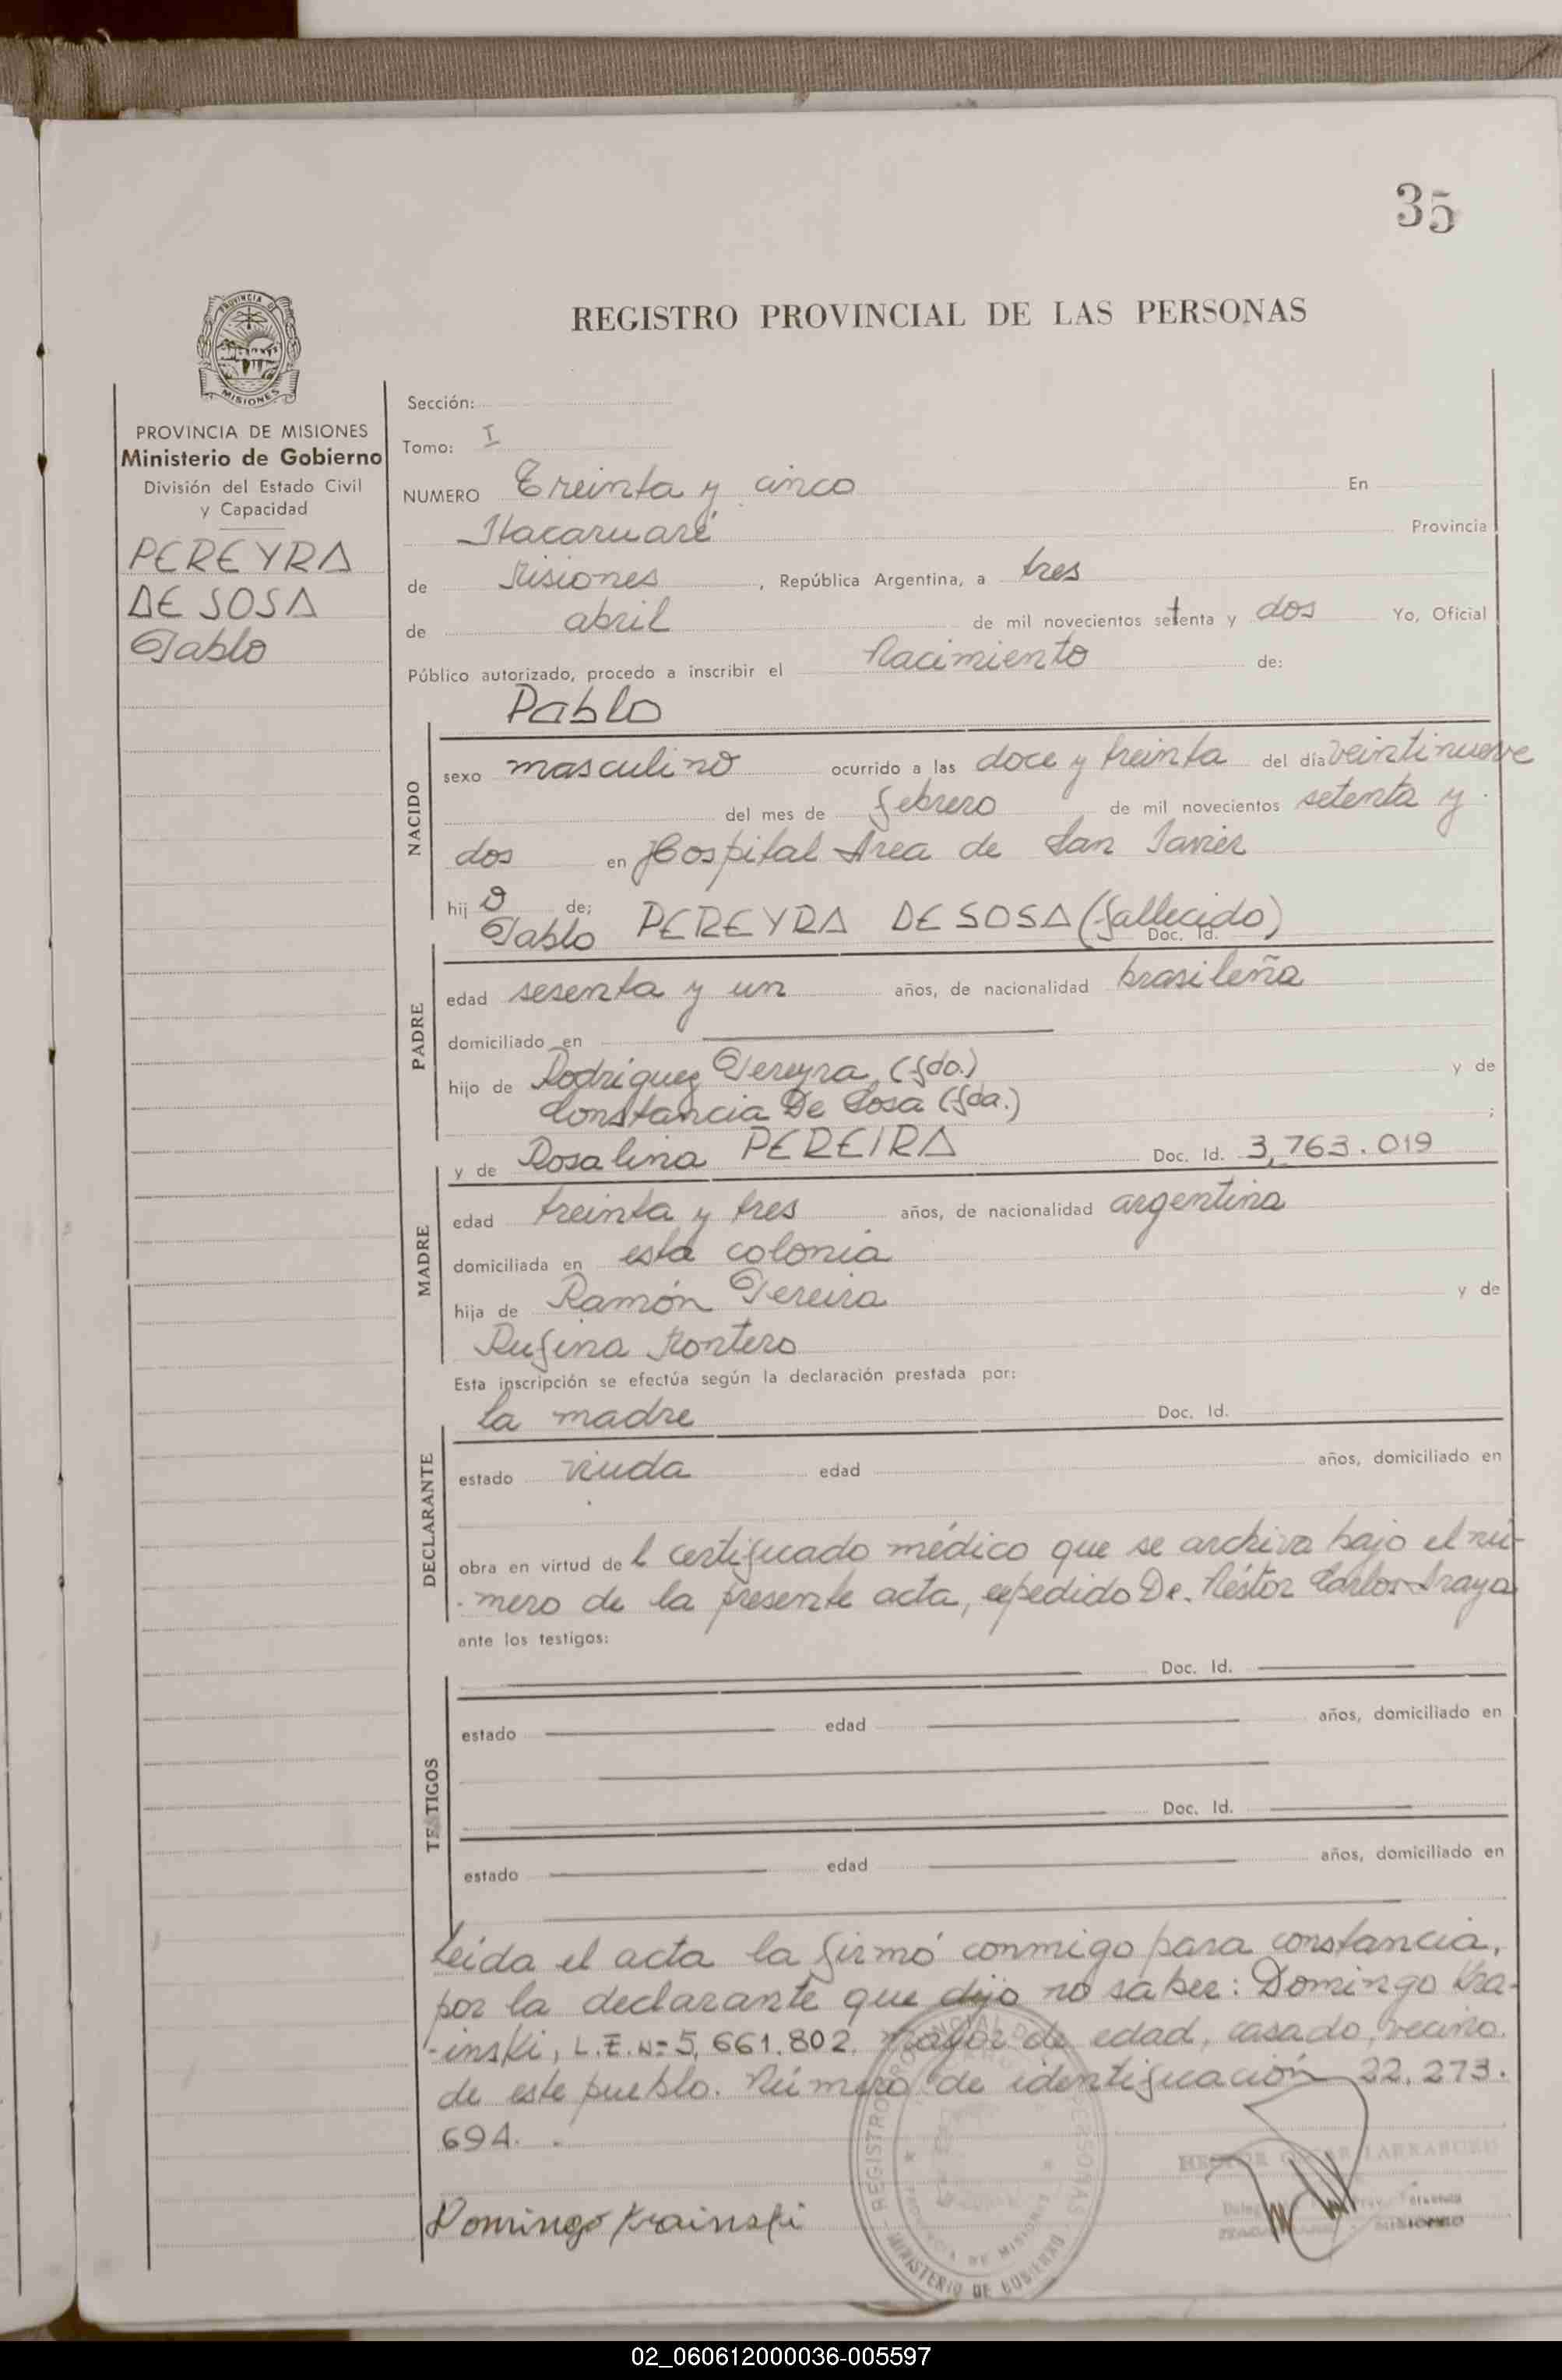 35
REGISTRO PROVINCIAL DE LAS PERSONAS
PROVINCIA DE MISIONES
PROVINCIA DE MISIONES
Ministerio de Gobierno
División del Estado Civil
y Capacidad
PEREYRA
DE SOSA
Pablo
Sección:
Tomo: I
NUMERO Treinta y cinco En
Itacaruaré Provincia
de Misiones , República Argentina, a tres
de abril de mil novecientos setenta y dos Yo, Oficial
Público autorizado, procedo a inscribir el Nacimiento de:
Pablo
NACIDO
sexo masculino ocurrido a las doce y treinta del día veintinueve
del mes de febrero de mil novecientos setenta y
dos en Hospital Area de San Javier
hijo de;
Pablo PEREYRA DE SOSA (fallecido) Doc. Id.
PADRE
edad sesenta y un años, de nacionalidad brasileña
domiciliado en
hijo de Rodriguez Pereyra (fdo.) y de
Constancia De Sosa (fda.) ;
y de Rosalina PEREIRA Doc. Id. 3,763.019
MADRE
edad treinta y tres años, de nacionalidad argentina
domiciliada en esta colonia
hija de Ramón Pereira y de
Rufina Montero
Esta inscripción se efectúa según la declaración prestada por:
la madre Doc. Id.
DECLARANTE
estado viuda edad años, domiciliado en
obra en virtud del certificado médico que se archiva bajo el nú-
mero de la presente acta, expedido Dr. Néstor Carlos
ante los testigos:
Doc. Id.
TESTIGOS
estado edad años, domiciliado en
Doc. Id.
estado edad años, domiciliado en
Leída el acta la firmó conmigo para constancia,
por la declarante que dijo no saber: Domingo Kra-
inski, L.E. Nº 5,661.802, mayor de edad, casado, vecino
de este pueblo. Número de identificación 22.273.
694.
Domingo Krainski
REGISTRO PROVINCIAL DE LAS PERSONAS
PROVINCIA DE MISIONES
MINISTERIO DE GOBIERNO
02_060612000036-005597